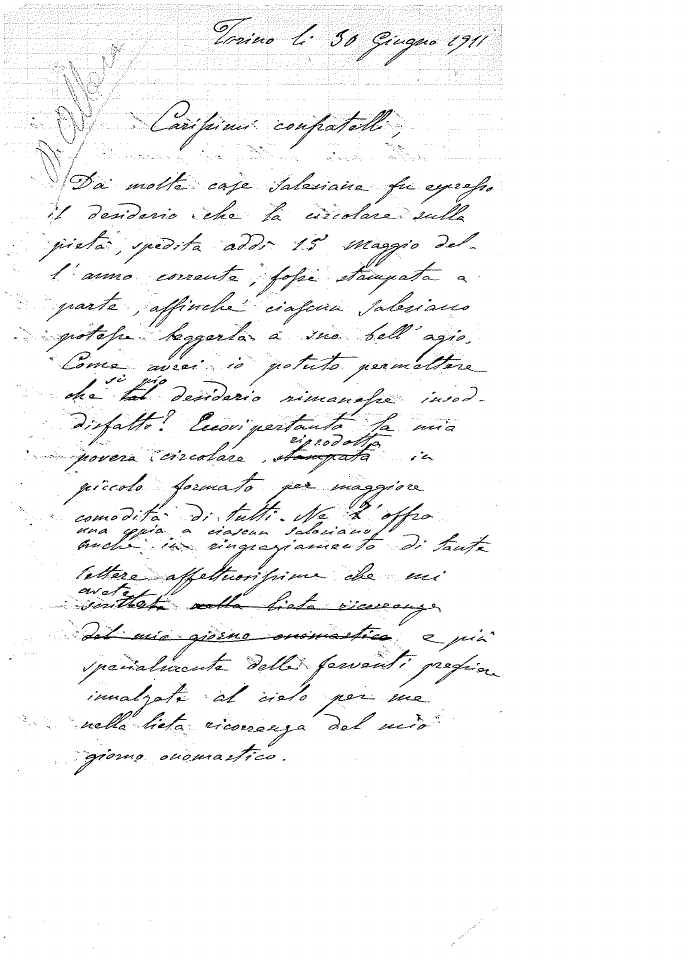 Torino li 30 Giugno 1911
D. Albera
Carissimi confratelli,
Da molte case salesiane fu espresso
il desiderio che la circolare sulla
pietà, spedita addì 15 maggio del-
l'anno corrente, fosse stampata a
parte, affinché ciascun salesiano
potesse leggerla a suo bell'agio.
Come avrei io potuto permettere
si pio
che tal desiderio rimanesse insod-
disfatto? Eccovi pertanto la mia
riprodotta
povera circolare, stampata in
piccolo formato per maggiore
comodità di tutti. Ne offro
una copia a ciascun salesiano
anche in ringraziamento di tante
lettere affettuosissime che mi
avete
scritto nella lieta ricorrenza
del mio giorno onomastico e più
specialmente delle ferventi preghiere
innalzate al cielo per me
nella lieta ricorrenza del mio
giorno onomastico.